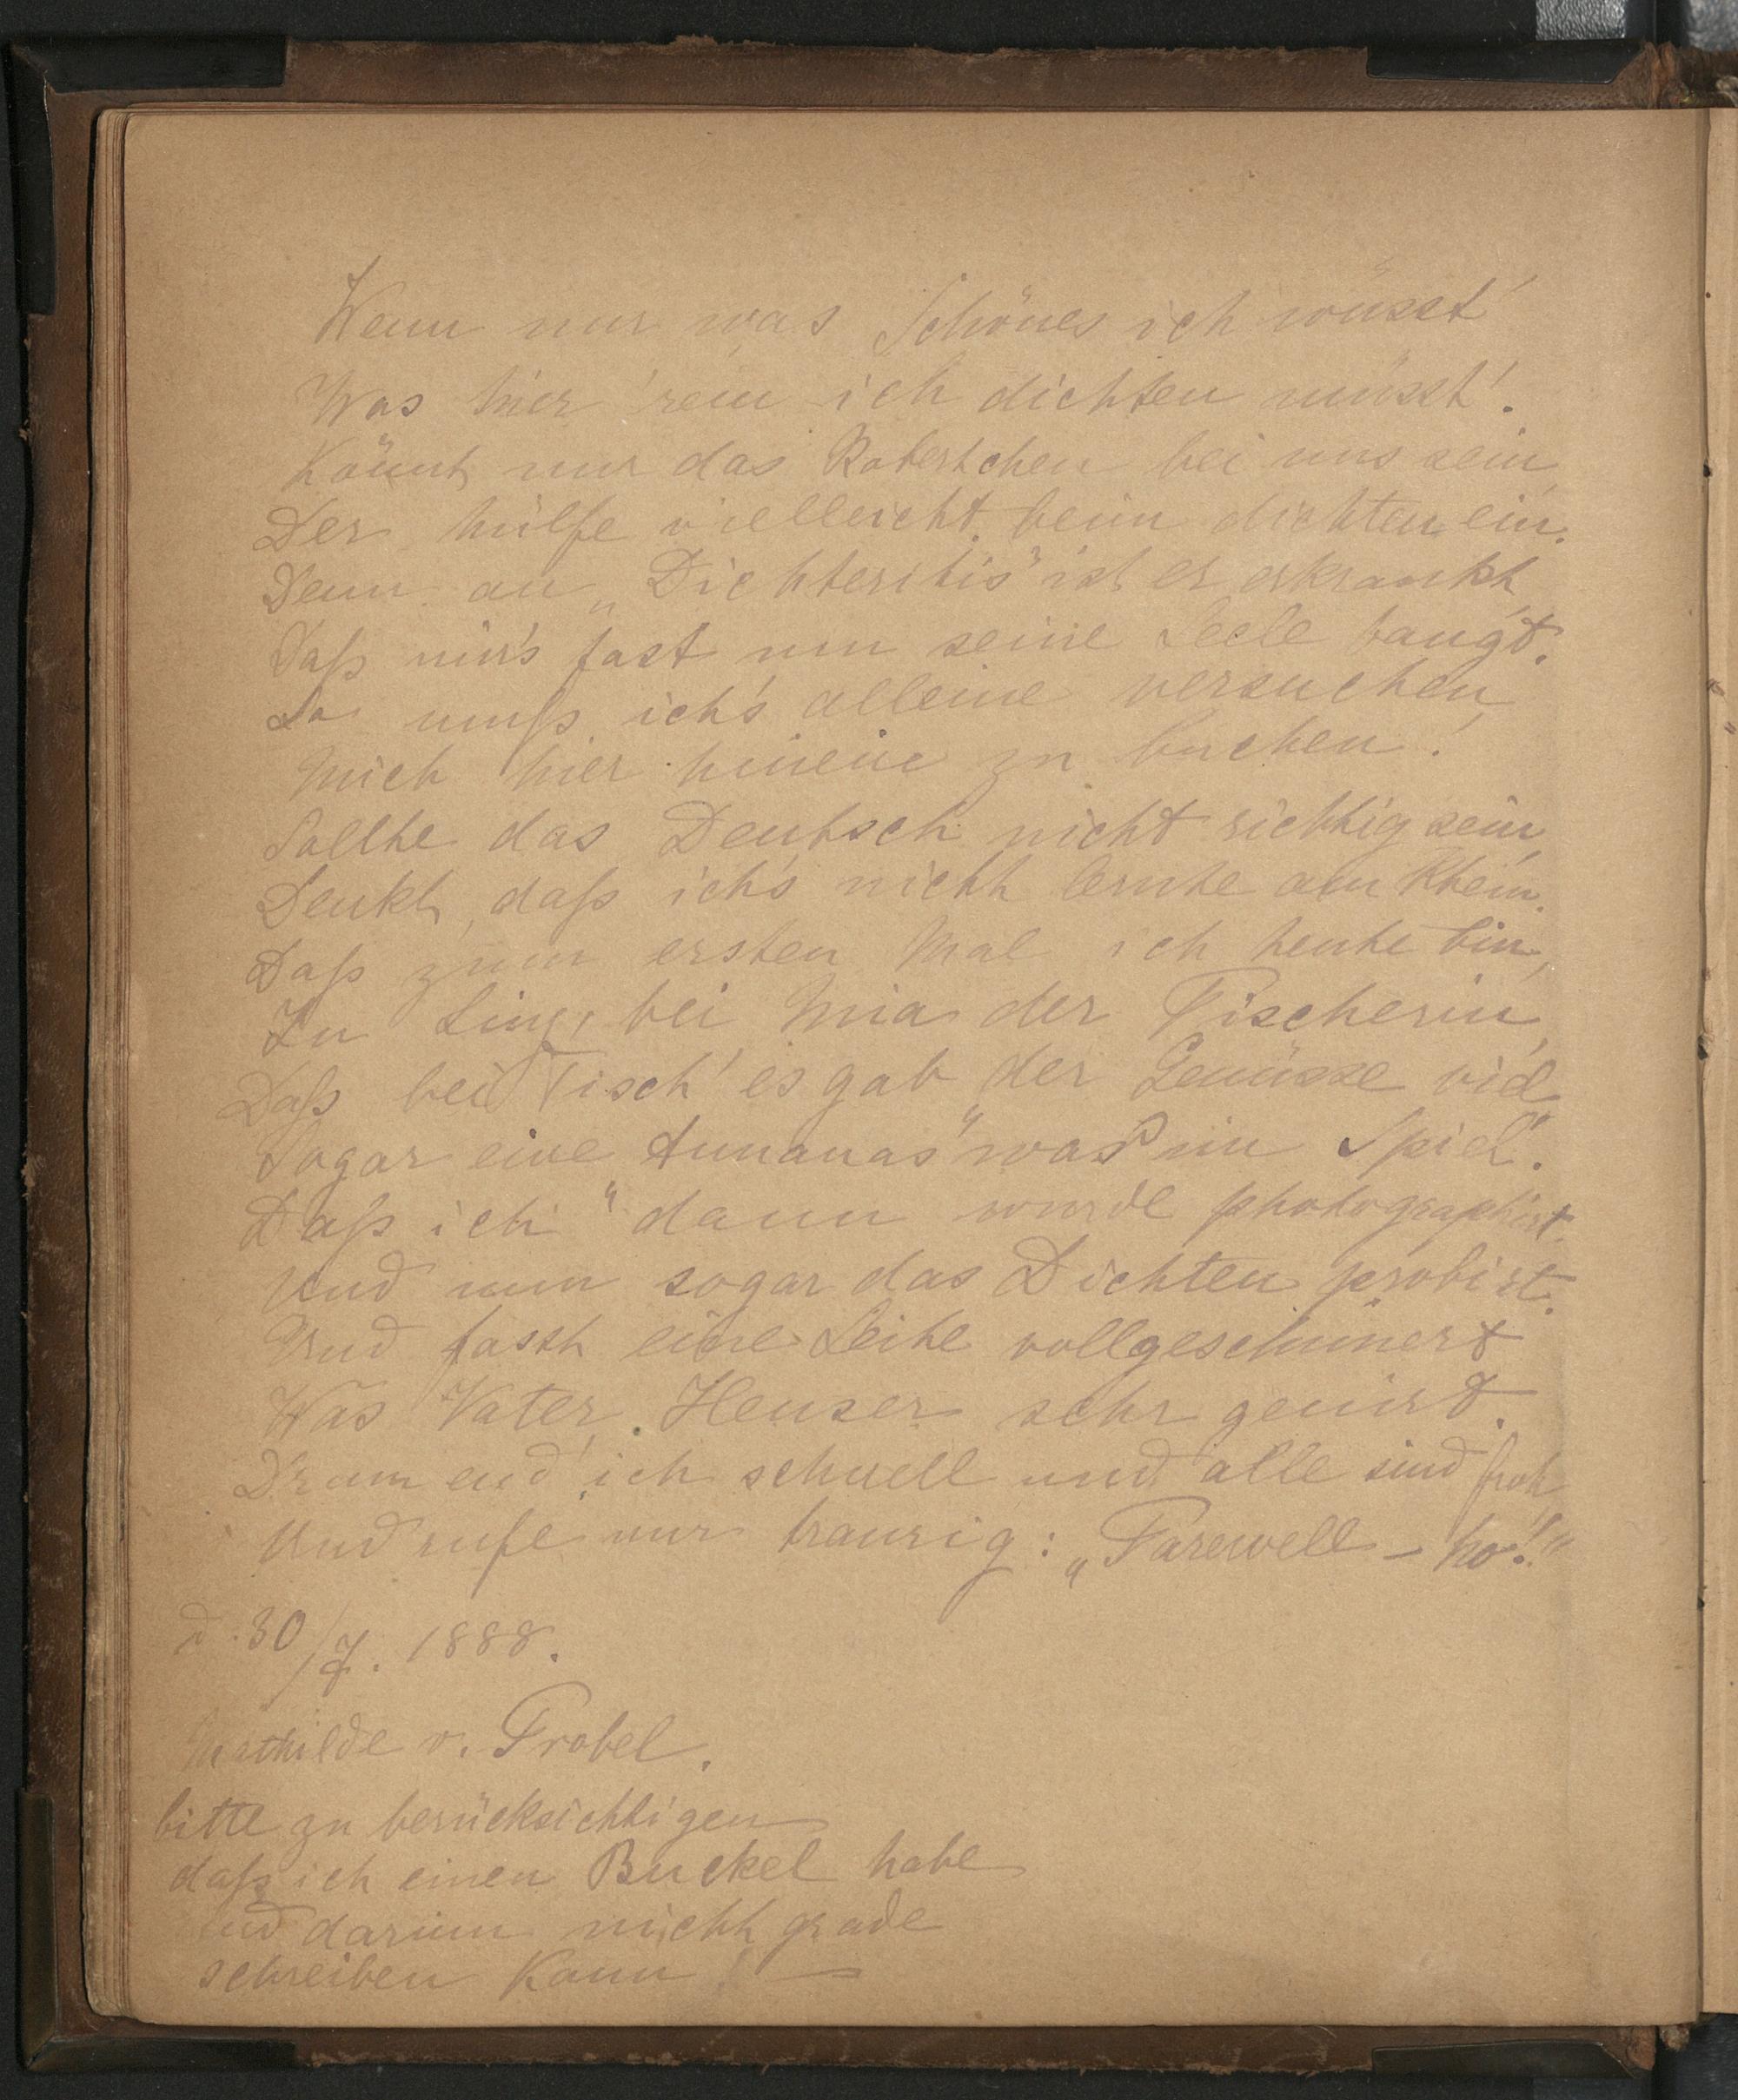 Wenn nur was Schönes ich wüsst'
Was hier 'rein ich dichten müsst'.
Könnt nur das Robertchen bei uns sein,
Der hülfe vielleicht beim dichten ein.
Denn an „Dichteritis" ist er erkrankt,
Daß mir's fast um seine Seele bangt.
So muß ich's alleine versuchen,
Mich hier hineine zu buchen!
Sollte das Deutsch nicht richtig sein,
Denkt, daß ich's nicht lernte am Rhein.
Daß zum ersten Mal ich heute bin,
In Linz, bei Mia der Fischerin,
Daß bei Tisch' es gab der Genüsse viel,
Sogar eine Annanas" was im Spiel".
Daß ich" dann wurde photographirt.
Und nun sogar das Dichten probirt.
Und fasst eine Seite vollgeschmiert
Was Vater Heuser sehr genirt.
D'rum end' ich schnell und alle sind froh,
Und rufe nur traurig: „Farewell – ho!"
d. 30/7. 1888.
Mathilde v. Frobel.
bitte zu berücksichtigen
daß ich einen Buckel habe
und darum nicht grade
schreiben kann! —